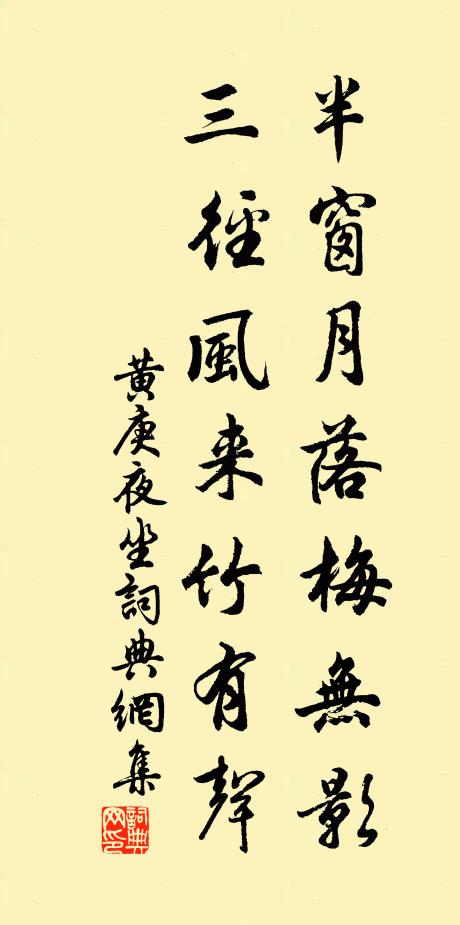 半窗月落梅無影
三徑風来竹有聲
黄庚夜坐詞典網集
詞典網印